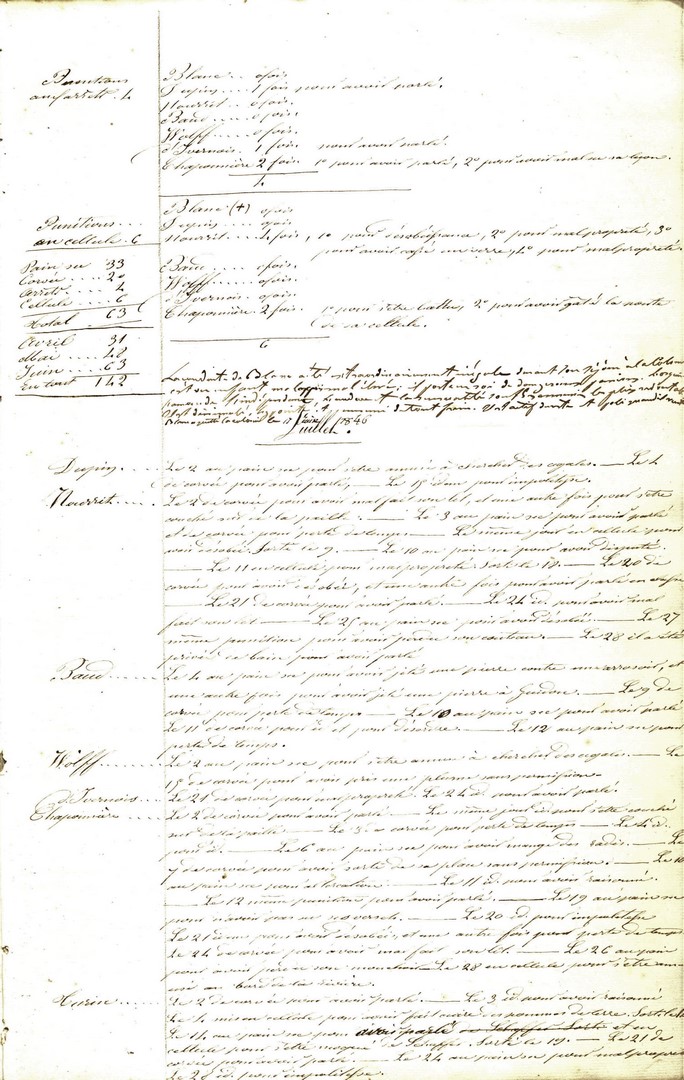 Punitions
aux arrêts. 4
Blanc .. 0 fois.
Dupin .... 1 fois pour avoir parlé.
Nourrit .... 0 fois.
Baud ..... 0 fois.
Wolff ...... 0 fois.
d'Ivernois . 1 fois pour avoir parlé.
Chaponnière 2 fois. 1° pour avoir parlé, 2° pour avoir mal su sa leçon.
4.
Punitions ....
en cellule . 6
Blanc (+) 0 fois
Dupin .... 0 fois
Nourrit .... 4 fois, 1° pour désobéissance, 2° pour malpropreté, 3°
pour avoir cassé un verre, 4° pour malpropreté.
Baud ..... 0 fois.
Wolff ..... 0 fois.
d'Ivernois .. 0 fois.
Chaponnière 2 fois. 1° pour s'être battu, 2° pour avoir gâté la porte
de sa cellule.
6
Pain sec 33
Corvée .... 20
Arrêts .... 4
Cellule .... 6
Total . 63
Avril 31
Mai .... 48
Juin .... 63
En tout 142
La conduite de Blanc a été extraordinairement inégale durant son séjour à la Colonie
Juillet 1846
Dupin .... Le 2 au pain sec pour s'être amusé à chercher des cigales. — Le 4
de corvée pour avoir parlé, — Le 18 idem pour impolitesse.
Nourrit .... Le 2 de corvée pour avoir mal fait son lit, et une autre fois pour s'être
couché sur de la paille. — Le 3 au pain sec pour avoir parlé
et de corvée pour perte de temps. — Le même jour en cellule pour
avoir désobéi. Sorti le 9. — Le 10 au pain sec pour avoir disputé.
— Le 11 en cellule pour malpropreté. Sorti le 18. — Le 20 de
corvée pour avoir désobéi, et une autre fois pour avoir parlé en classe
— Le 21 de corvée pour avoir parlé. — Le 24 id. pour avoir mal
fait son lit — Le 25 au pain sec pour avoir désobéi. — Le 27
même punition pour avoir perdu son couteau. — Le 28 il a été
privé de bain pour avoir parlé
Baud ..... Le 4 au pain sec pour avoir jeté une pierre contre un arrosoir, et
une autre fois pour avoir jeté une pierre à — Le 9 de
corvée pour perte de temps — Le 10 au pain sec pour avoir parlé
Le 11 de corvée pour id et pour désordre. — Le 12 au pain sec pour
perte de temps.
Wolff ...... Le 2 au pain sec pour s'être amusé à chercher des cigales. — Le
18 de corvée pour avoir pris une plume sans permission.
d'Ivernois .... Le 21 de corvée pour malpropreté. Le 24 id. pour avoir parlé.
Chaponnière .... Le 2 de corvée pour avoir parlé. — Le même jour id. pour s'être couché
sur de la paille. — Le 3 de corvée pour perte de temps — Le 4 id.
pour id. — Le 6 au pain sec pour avoir mangé des radis. — Le
7 de corvée pour avoir sorti de sa place sans permission. — Le 10
au pain sec pour altercation. — Le 11 id. pour avoir raisonné.
— Le 12 même punition pour avoir parlé. — Le 19 au pain sec
pour n'avoir pas su ses versets. — Le 20 id. pour impolitesse
Le 21 idem pour avoir désobéi, et une autre fois pour perte de temps
Le 24 de corvée pour avoir mal fait son lit. — Le 26 au pain
pour avoir perdu son mouchoir — Le 28 en cellule pour s'être amusé
au bord de la rivière.
Le 2 de corvée pour avoir parlé. — Le 3 id. pour avoir raisonné
Le 4 mis en cellule pour avoir fait cuire des pommes de terre. Sorti le
Le 14 au pain sec pour avoir parlé et en
cellule pour s'être moqué de Sorti le 19. — Le 21 de
corvée pour avoir parlé. — Le 24 au pain sec pour malpropreté
Le 28 id. pour impolitesse.